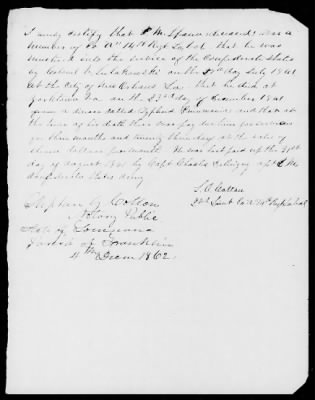 I ... certify that P. M. Spann deceased was a
member of Co "A" 14th Regt La Vol. that he was
mustered into the service of the Confederate States
by Colonel V. Sulakowski on the ... day July 1861
at the City of New Orleans La. that he died at
Yorktown Va on the 23rd day of December 1861
from a disease called Typhoid Pneumonia and that at
the time of his death there was pay due him ...
for three months and twenty three days at the rate of
eleven dollars per month. He was last paid up the 31st
day of August 1861 by Capt Charles ... of the
Confederate States Army
S. A. Cotton
2nd Lieut Co "A" 14th Regt La Vol
Stephen G. Cotton
Notary Public
State of Louisiana
Parish of Franklin
4th Decem 1862.